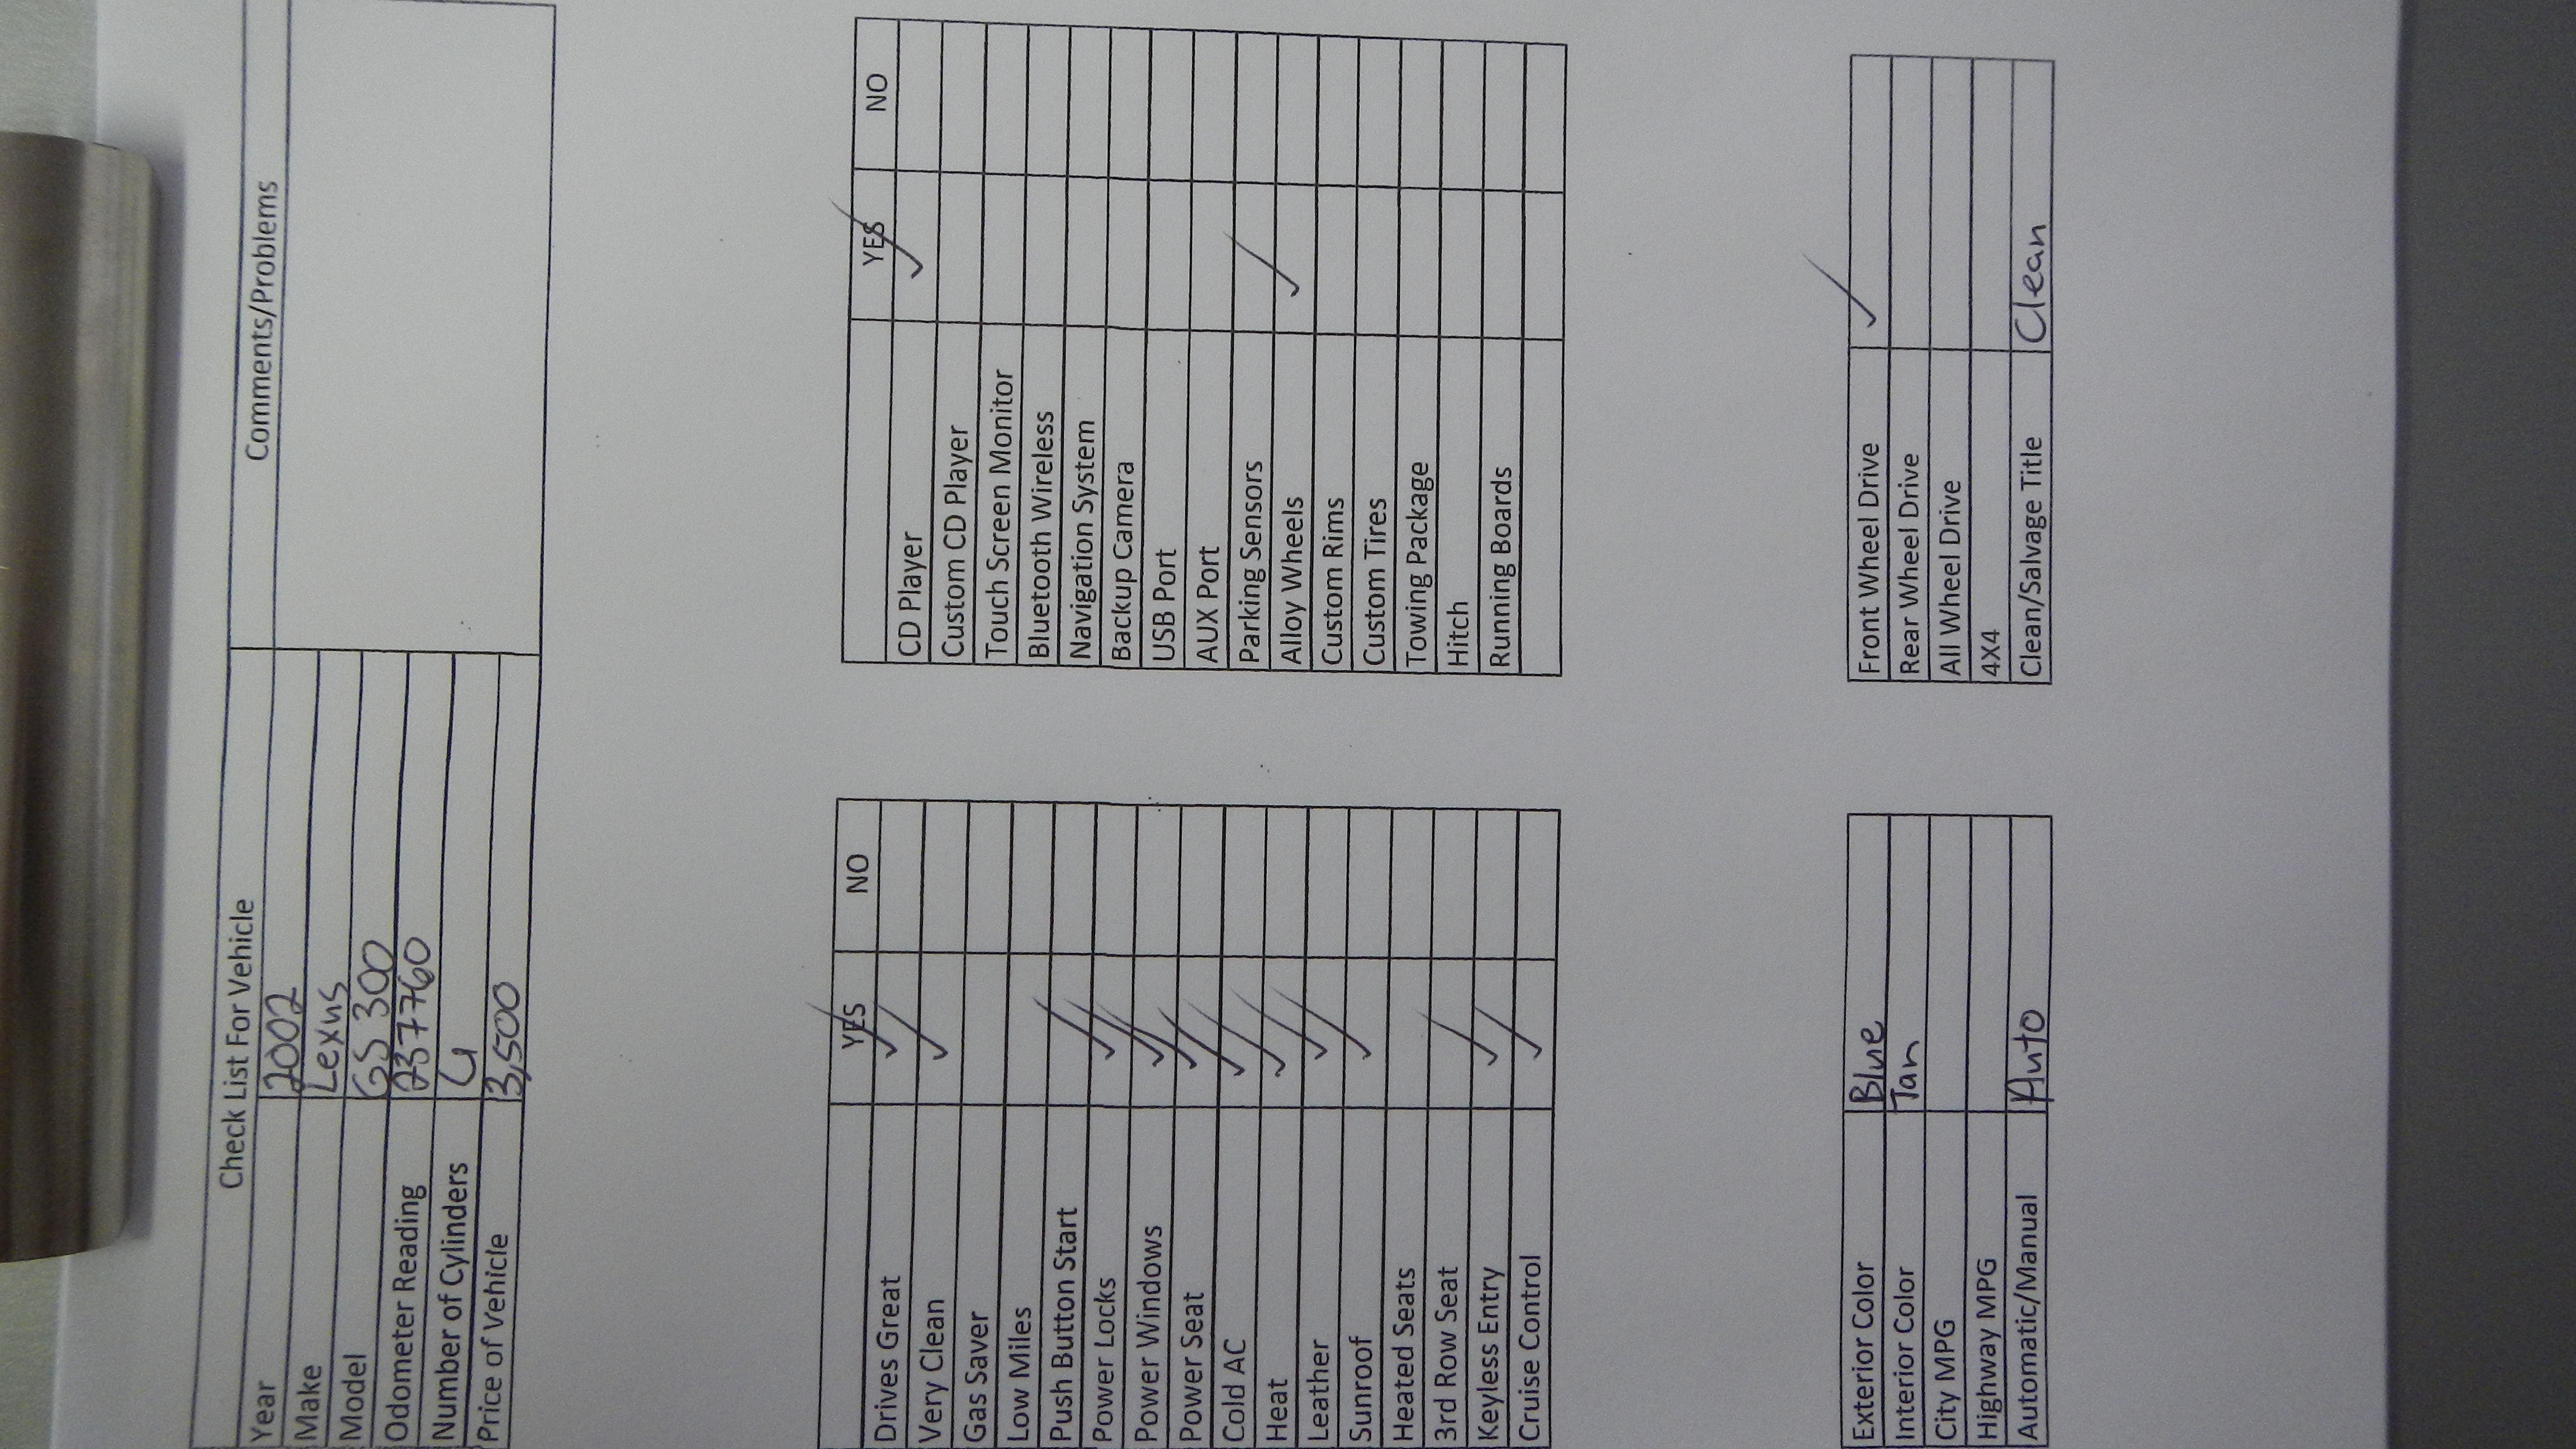 Check List For Vehicle Comments/Problems
Year 2002
Make Lexus
Model GS 300
Odometer Reading 237760
Number of Cylinders
Price of Vehicle 3,500
YES NO
Drives Great ✓
Very Clean ✓
Gas Saver
Low Miles
Push Button Start
Power Locks ✓
Power Windows ✓
Power Seat ✓
Cold AC ✓
Heat ✓
Leather ✓
Sunroof ✓
Heated Seats
3rd Row Seat
Keyless Entry ✓
Cruise Control ✓
YES NO
CD Player ✓
Custom CD Player
Touch Screen Monitor
Bluetooth Wireless
Navigation System
Backup Camera
USB Port
AUX Port
Parking Sensors
Alloy Wheels ✓
Custom Rims
Custom Tires
Towing Package
Hitch
Running Boards
Exterior Color Blue
Interior Color Tan
City MPG
Highway MPG
Automatic/Manual Auto
Front Wheel Drive ✓
Rear Wheel Drive
All Wheel Drive
4X4
Clean/Salvage Title Clean